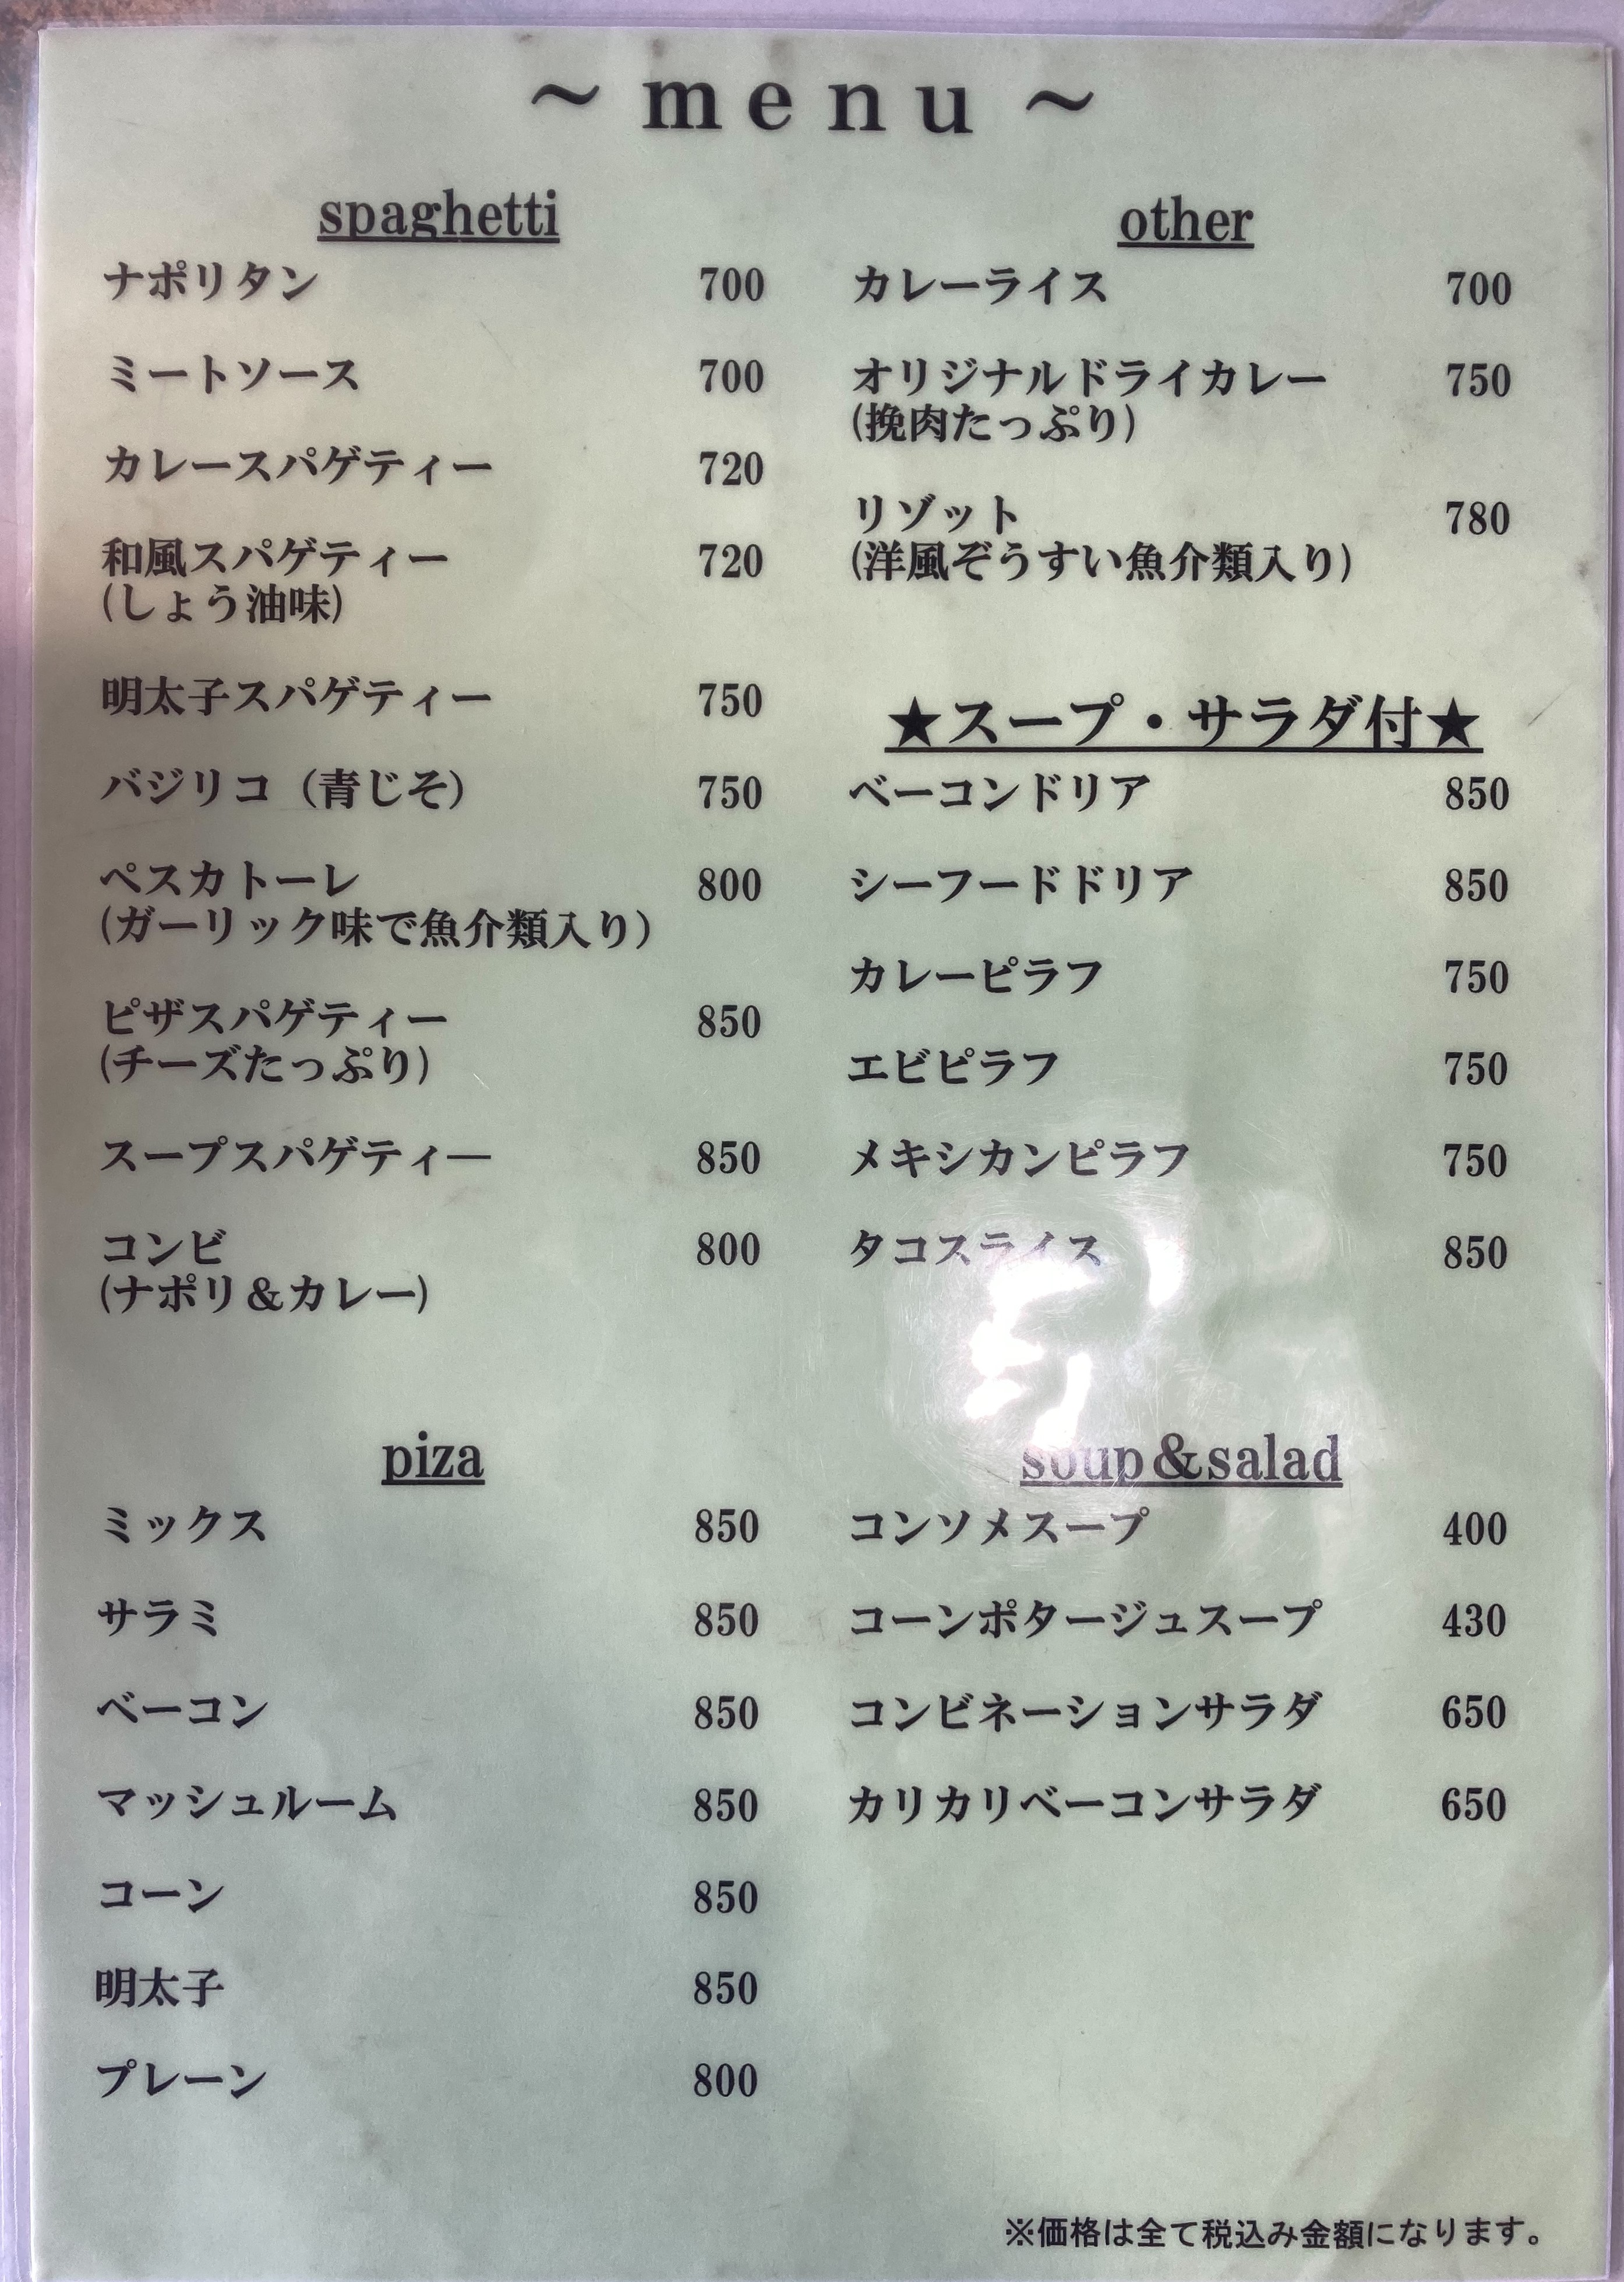 ～ menu ～
spaghetti
ナポリタン 700
ミートソース 700
カレースパゲティー 720
和風スパゲティー 720
(しょう油味)
明太子スパゲティー 750
バジリコ（青じそ） 750
ペスカトーレ 800
(ガーリック味で魚介類入り）
ピザスパゲティー 850
(チーズたっぷり)
スープスパゲティ― 850
コンビ 800
(ナポリ＆カレー)
piza
ミックス 850
サラミ 850
ベーコン 850
マッシュルーム 850
コーン 850
明太子 850
プレーン 800
other
カレーライス 700
オリジナルドライカレー 750
(挽肉たっぷり)
リゾット 780
(洋風ぞうすい魚介類入り)
★スープ・サラダ付★
ベーコンドリア 850
シーフードドリア 850
カレーピラフ 750
エビピラフ 750
メキシカンピラフ 750
タコスライス 850
soup＆salad
コンソメスープ 400
コーンポタージュスープ 430
コンビネーションサラダ 650
カリカリベーコンサラダ 650
※価格は全て税込み金額になります。